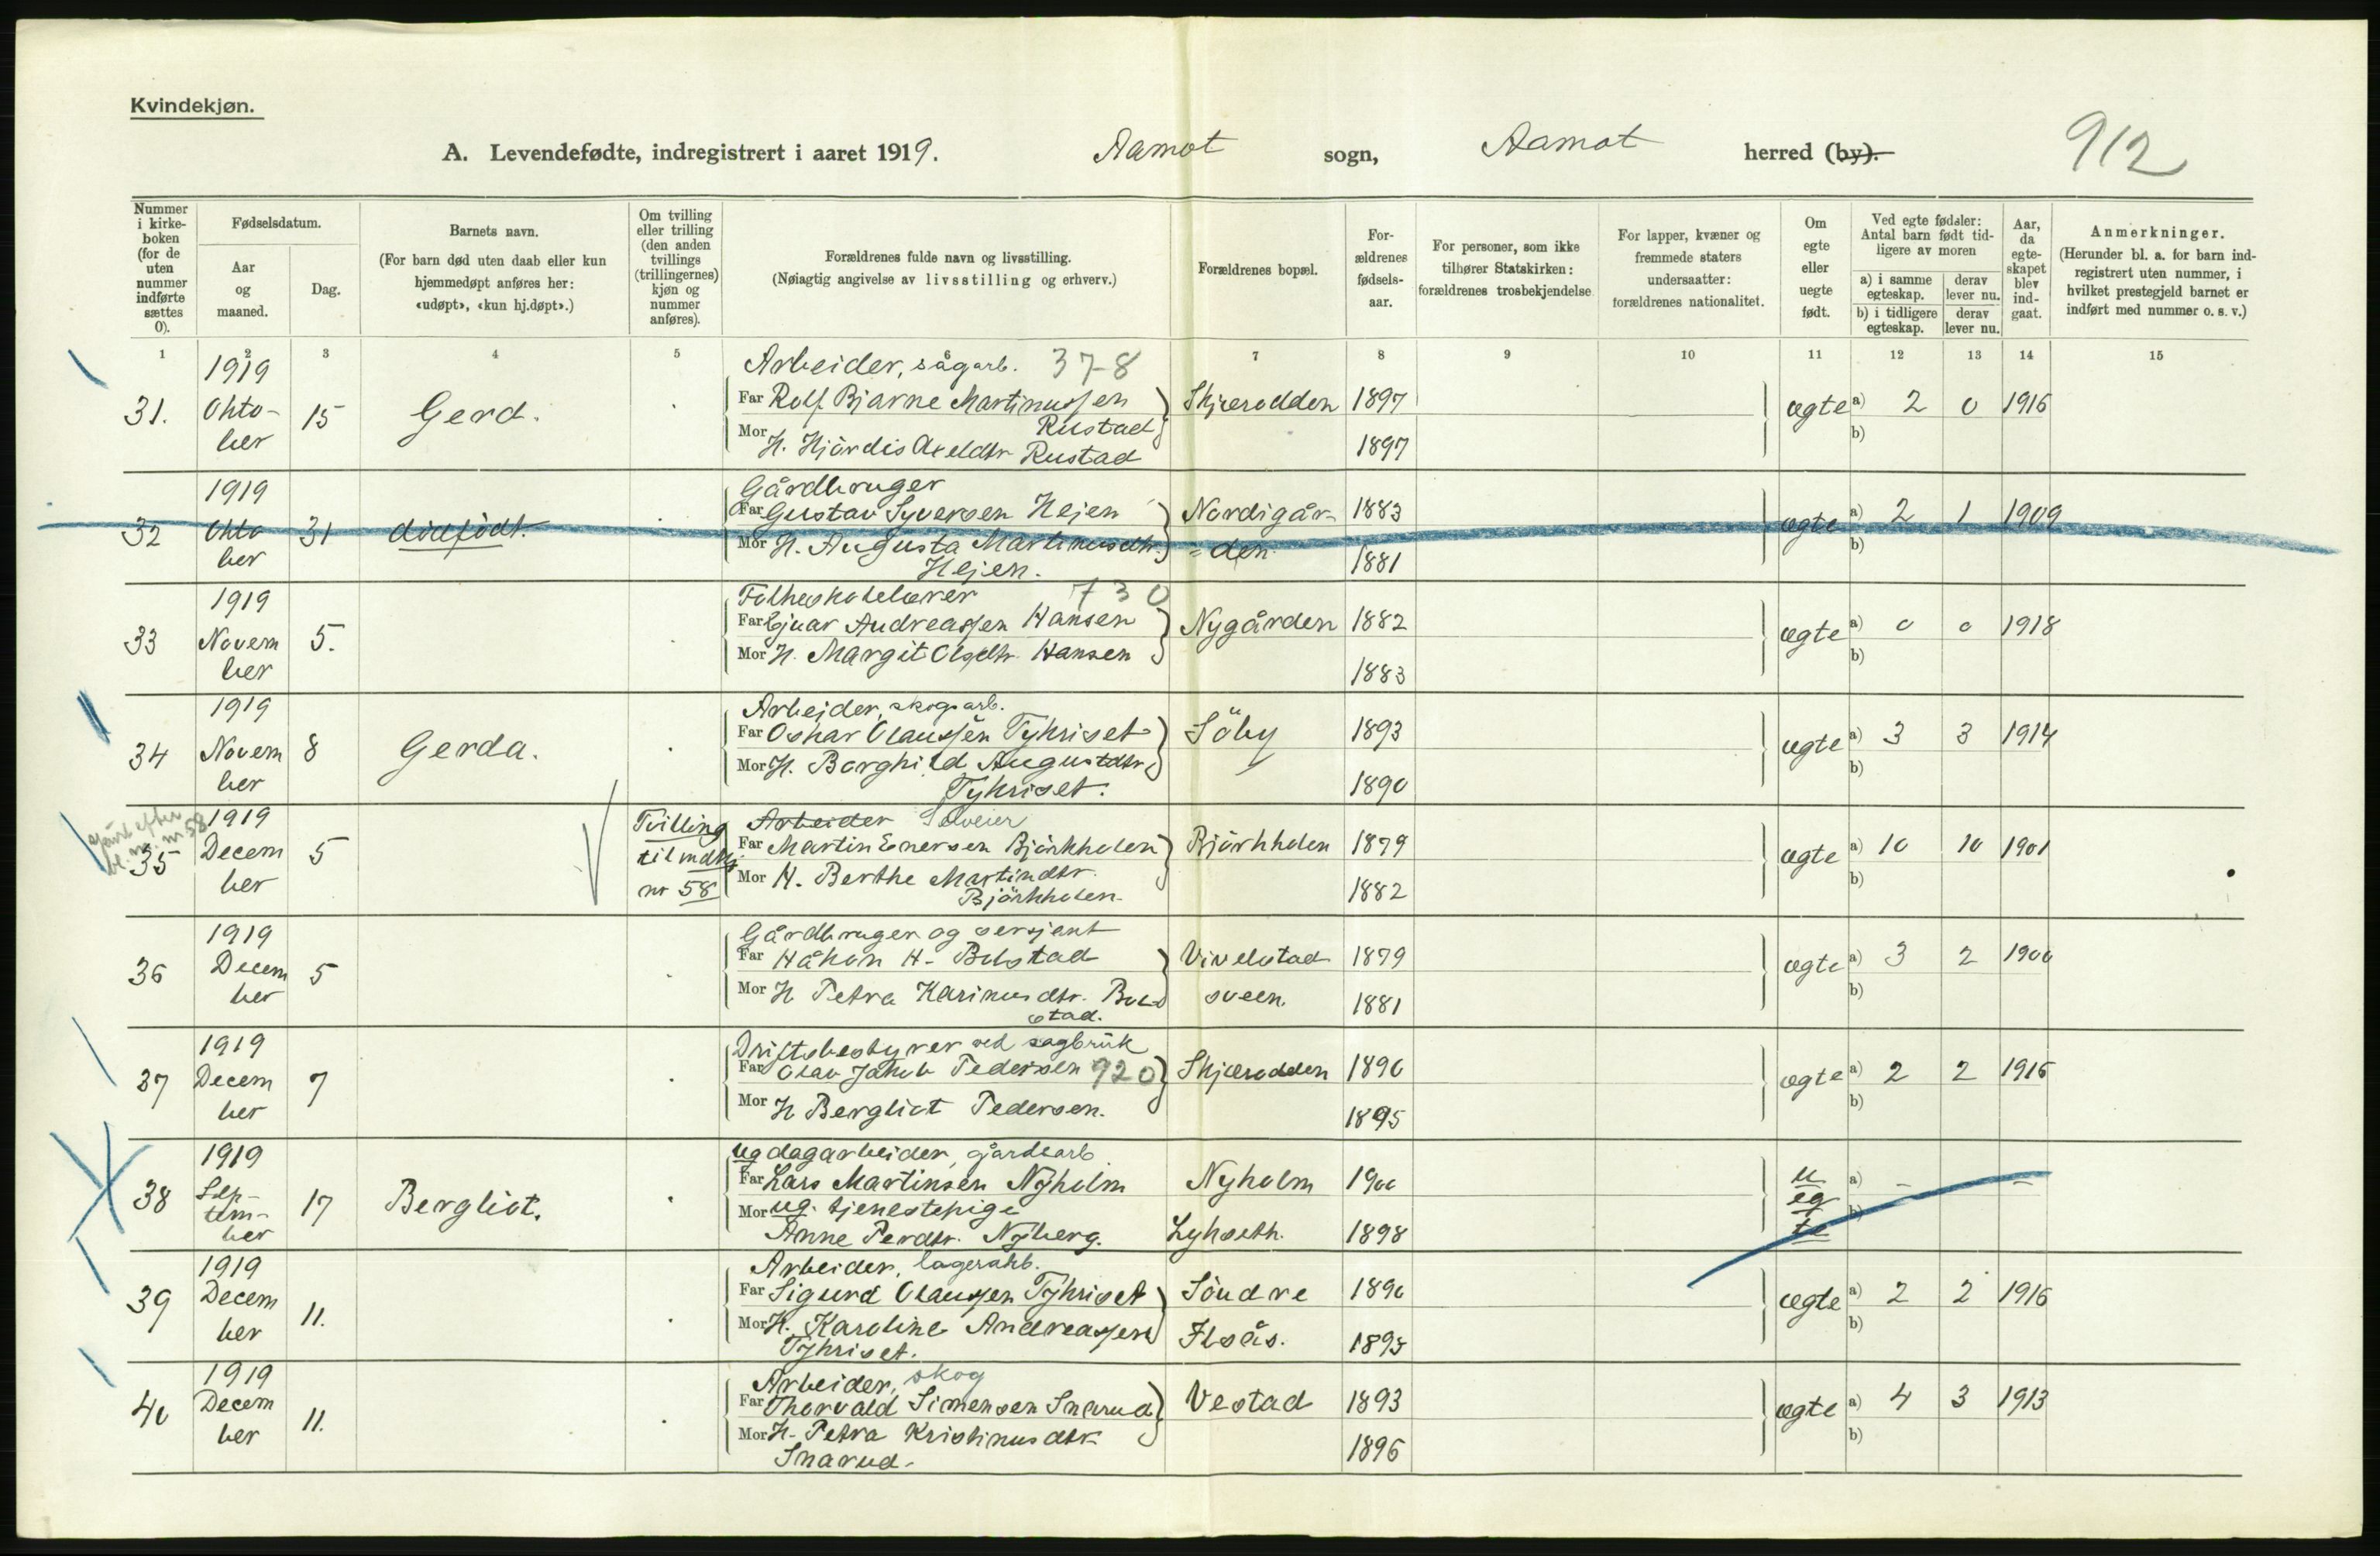 Kvindekjøn.
A. Levendefødte, indregistrert i aaret 1919. Aamot sogn, Aamot herred (by). 912
Nummer i kirkeboken (for de uten nummer indførte sættes 0).
Fødselsdatum.
Aar og maaned.
Dag.
Barnets navn.
(For barn død uten daab eller kun hjemmedøpt anføres her: «udøpt», «kun hj.døpt».)
Om tvilling eller trilling (den anden tvillings (trillingernes) kjøn og nummer anføres).
Forældrenes fulde navn og livsstilling.
(Nøiagtig angivelse av livsstilling og erhverv.)
Forældrenes bopæl.
Forældrenes fødselsaar.
For personer, som ikke tilhører Statskirken: forældrenes trosbekjendelse.
For lapper, kvæner og fremmede staters undersaatter: forældrenes nationalitet.
Om egte eller uegte født.
Ved egte fødsler: Antal barn født tidligere av moren
a) i samme egteskap.
derav lever nu.
b) i tidligere egteskap.
derav lever nu.
Aar, da egteskapet blev indgaat.
Anmerkninger.
(Herunder bl. a. for barn indregistrert uten nummer, i hvilket prestegjeld barnet er indført med nummer o. s. v.)
1 2 3 4 5 6 7 8 9 10 11 12 13 14 15
1919 Arbeider, sågarb. 37-8
31. Okto- 15 Gerd. Far Rolf Bjarne Martinussen Skjærodden 1897 ægte a) 2 0 1916
ber Rustad
Mor H. Hjördis Axeldtr Rustad 1897 b)
1919 Gårdbruger
32 Okto 31 dødfødt. Far Gustav Syversen Hejen Nordigår- 1883 ægte a) 2 1 1909
ber Mor H. Augusta Martinusdtr. =den 1881 b)
Hejen.
1919 Folkeskolelærer 730
33 Novem 5. Far Ejnar Andreassen Hansen Nygården 1882 ægte a) 0 0 1918
ber Mor H. Margit Olsdtr. Hansen 1883 b)
1919 Arbejder, skogsarb.
34 Novem 8 Gerda. Far Oskar Olaussen Tykriset Söby 1893 ægte a) 3 3 1914
ber Mor H. Borghild Augustdtr 1890 b)
Tykriset.
gård efter bl. m. nr 58
1919 Tvilling Arbeider Selveier
35 Decem 5 til mdkj Far Martin Enersen Björkholen Björkholen 1879 ægte a) 10 10 1901
ber nr 58 Mor H. Berthe Martindtr. 1882 b)
Björkholen.
1919 Gårdbruger og sersjant
36 Decem 5 Far Håkon H. Bolstad Vivelstad 1879 ægte a) 3 2 1900
ber Mor H Petra Karinusdtr. Bol- sveen. 1881 b)
stad.
1919 Driftsbestyrer ved sagbruk
37 Decem 7 Far Olav Jakob Pedersen 920 Skjærodden 1890 ægte a) 2 2 1916
ber Mor H Bergliot Pedersen. 1895 b)
1919 ug dagarbeider, gårdsarb.
38 Sep- 17 Bergliot. Far Lars Martinsen Nyholm Nyholm 1900 u a) - -
tem- Mor ug. tjenestepige eg b)
ber Anne Perdtr. Nyberg. Lykseth. 1898 te
1919 Arbeider, lagerarb.
39 Decem 11. Far Sigurd Olaussen Tykriset Söndre 1890 ægte a) 2 2 1916
ber Mor H. Karoline Andreassen Ilsås. 1893 b)
Tykriset.
1919 Arbeider, skog
40 Decem 11. Far Thorvald Simensen Snarud Vestad 1893 ægte a) 4 3 1913
ber Mor H. Petra Kristinusdtr 1896 b)
Snarud.